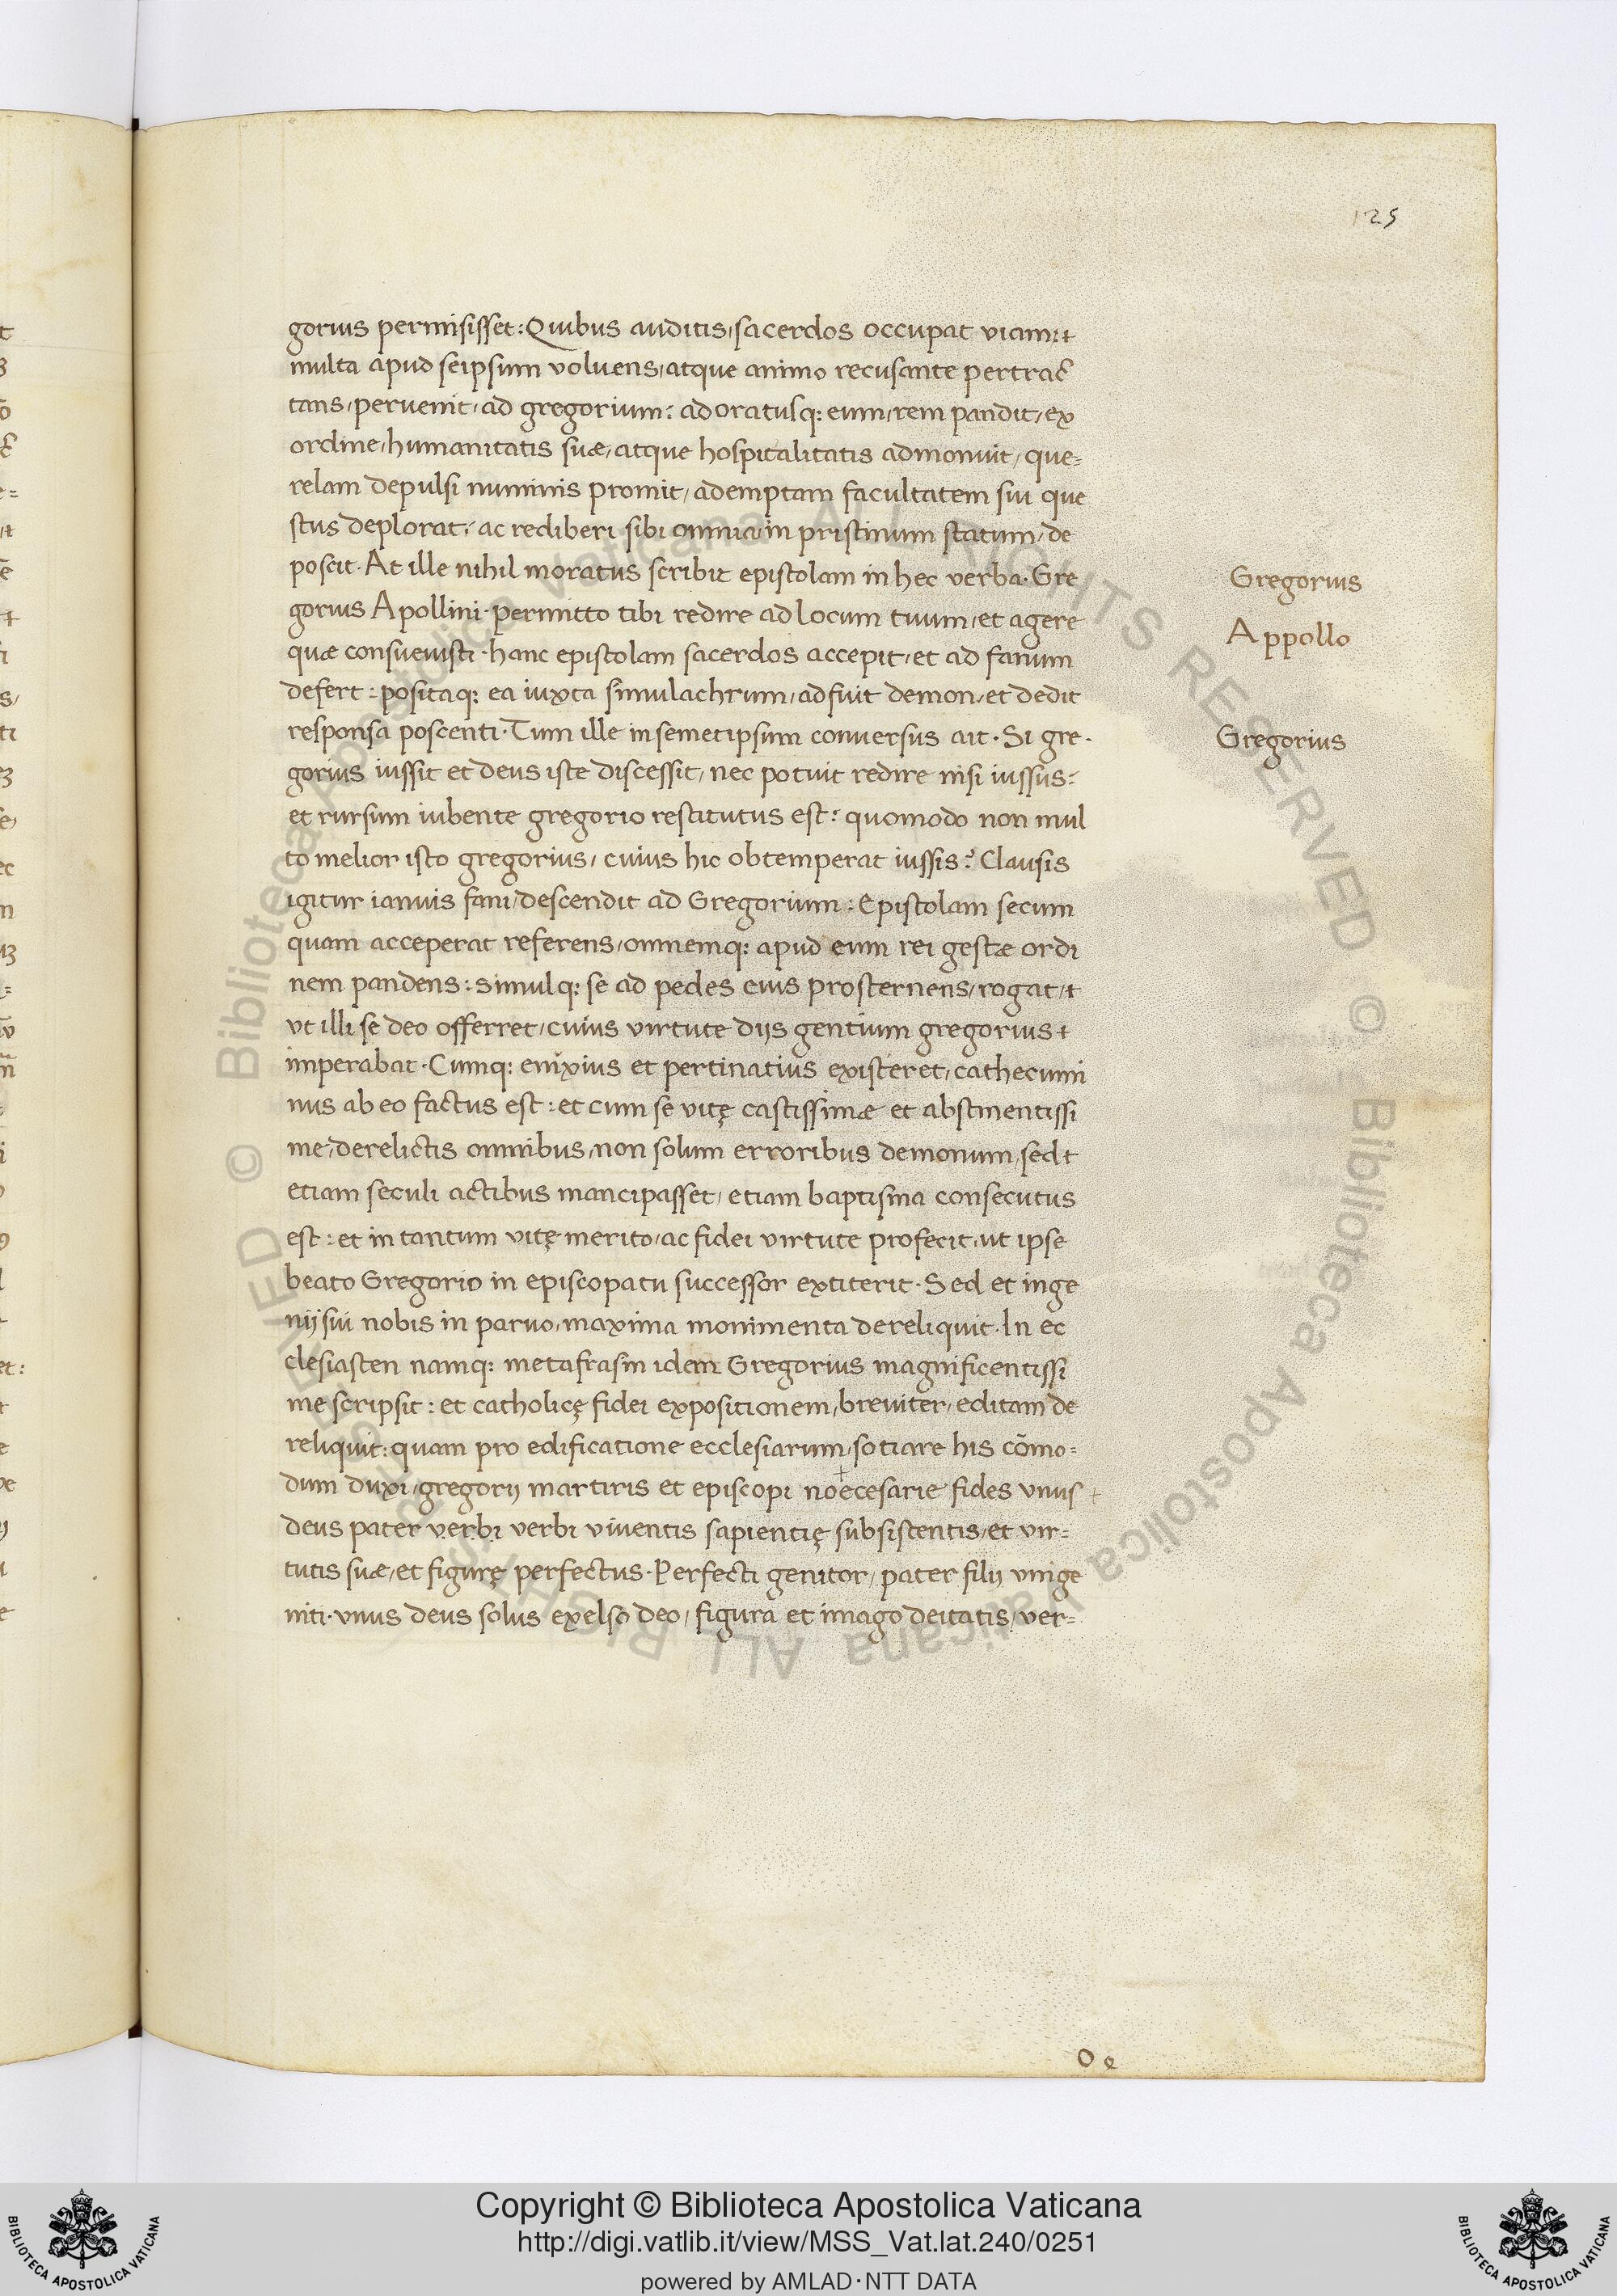 125
gorius permisisset: Quibus auditis, sacerdos occupat viam: t
multa apud seipsum voluens, atque animo recusante pertrac̄
tans, peruenit, ad gregorium: adoratusq: eum, rem pandit, ex
ordine, humanitatis suæ, atque hospitalitatis admonuit, que-
relam depulsi numinis promit, ademptam facultatem sui que
stus deplorat, ac rediberi sibi omnia, in pristinum statum, de
poscit. At ille nihil moratus scribit epistolam in hec verba. Gre
gorius Apollini. permitto tibi redire ad locum tuum, et agere
quæ consueuisti. hanc epistolam sacerdos accepit, et ad fanum
defert: positaq: ea iuxta simulachrum, adfuit demon, et dedit
responsa poscenti. Tum ille in semetipsum conuersus ait. Si gre-
gorius iussit et deus iste discessit, nec potuit redire nisi iussus:
et rursum iubente gregorio restitutus est: quomodo non mul
to melior isto gregorius, cuius hic obtemperat iussis? Clausis
igitur ianuis fani, descendit ad Gregorium: Epistolam secum
quam acceperat referens, omnemq: apud eum rei gestæ ordi
nem pandens: simulq: se ad pedes eius prosternens, rogat, t
vt illi se deo offerret, cuius virtute dijs gentium gregorius t
imperabat. Cumq: enixius et pertinatius existeret, cathecumi
nus ab eo factus est: et cum se vitę castissimæ et abstinentissi
me, derelictis omnibus, non solum erroribus demonum, sed t
etiam seculi actibus mancipasset, etiam baptisma consecutus
est: et in tantum vitę merito, ac fidei virtute profecit, ut ipse
beato Gregorio in episcopatu successor extiterit. Sed et inge
nij sui nobis in paruo, maxima monimenta dereliquit. In ec
clesiasten namq: metafrasin idem Gregorius magnificentissi
me scripsit: et catholicę fidei expositionem, breuiter, editam de
reliquit: quam pro edificatione ecclesiarum, sotiare his cōmo-
dum duxi, gregorij martiris et episcopi noecesarie fides vnus
deus pater verbi verbi viuentis sapientię subsistentis, et vir-
tutis suæ, et figurę perfectus. Perfecti genitor, pater filij vnige
niti. vnus deus solus exelso deo, figura et imago deitatis, ver-
Gregorius
Appollo
Gregorius
O e
© Biblioteca Apostolica Vaticana ALL RIGHTS RESERVED
© Biblioteca Apostolica Vaticana ALL RIGHTS RESERVED
Copyright © Biblioteca Apostolica Vaticana
http://digi.vatlib.it/view/MSS_Vat.lat.240/0251
powered by AMLAD·NTT DATA
BIBLIOTECA APOSTOLICA VATICANA
BIBLIOTECA APOSTOLICA VATICANA